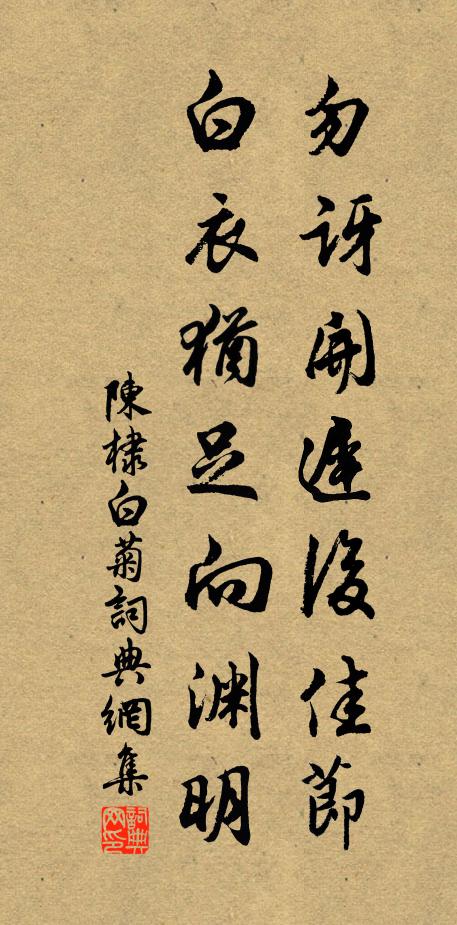 勿訝開遲後佳節
白衣猶足向淵明
陳棣白菊詞典網集
詞典網印